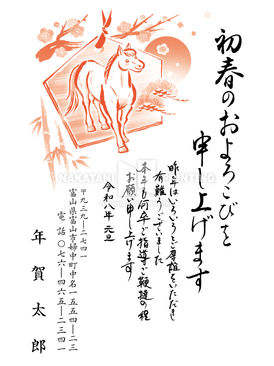 初春のおよろこびを
申し上げます
昨年はいろいろとご厚誼をいただき
有難うございました
本年も何卒ご指導ご鞭撻の程
お願い申し上げます
令和八年 元旦
〒九三九-二七四一
富山県富山市婦中町中名一五五四-二三
電話〇七六-四六五-二三四一
年賀太郎
NAKATANI PRINTING